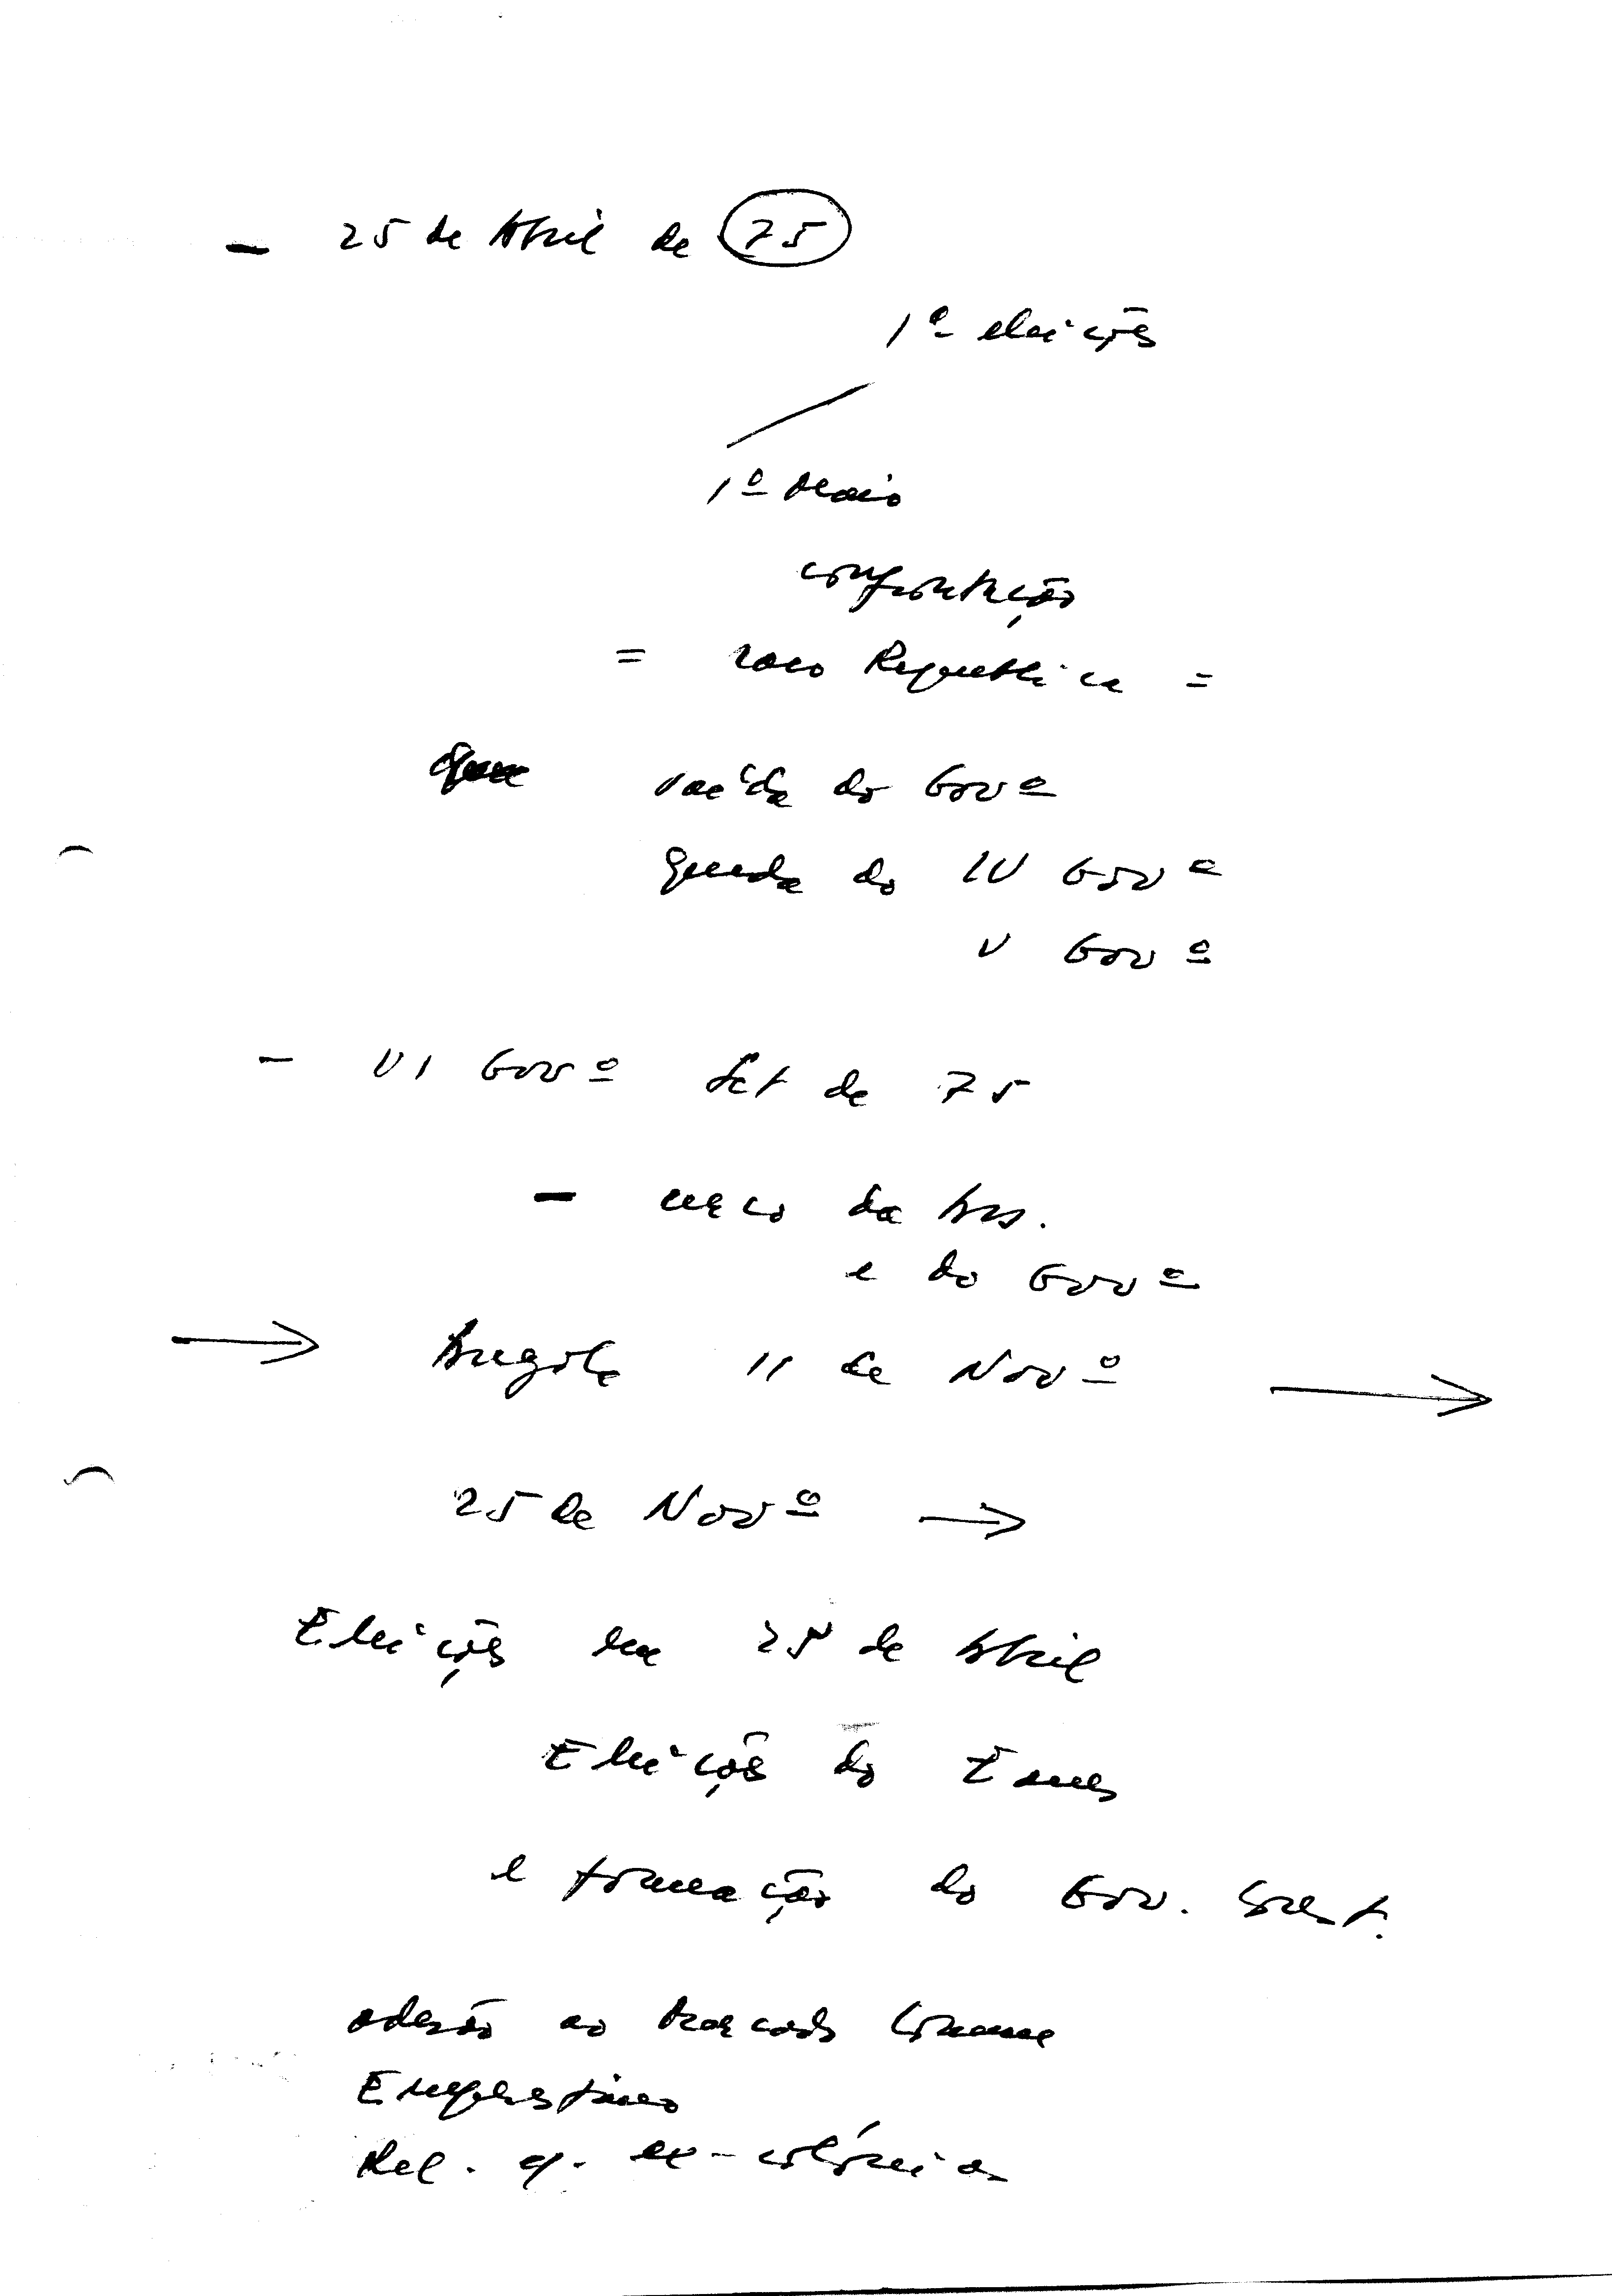 - 25 de Abril de 75
1ª eleições
1º Maio
confrontação
= caso República =
saída do Govº
queda do IV Govº
V Govº
- VI Govº Set de 75
- cerco da Ass.
e do Govº
→ Angola 11 de Novº →
25 de Novº →
Eleições em 25 de Abril
Eleições do Eanes
e formação do Gov. Const.
adesão ao Mercado Comum
Empréstimo
Rel. c/. ex-colónias